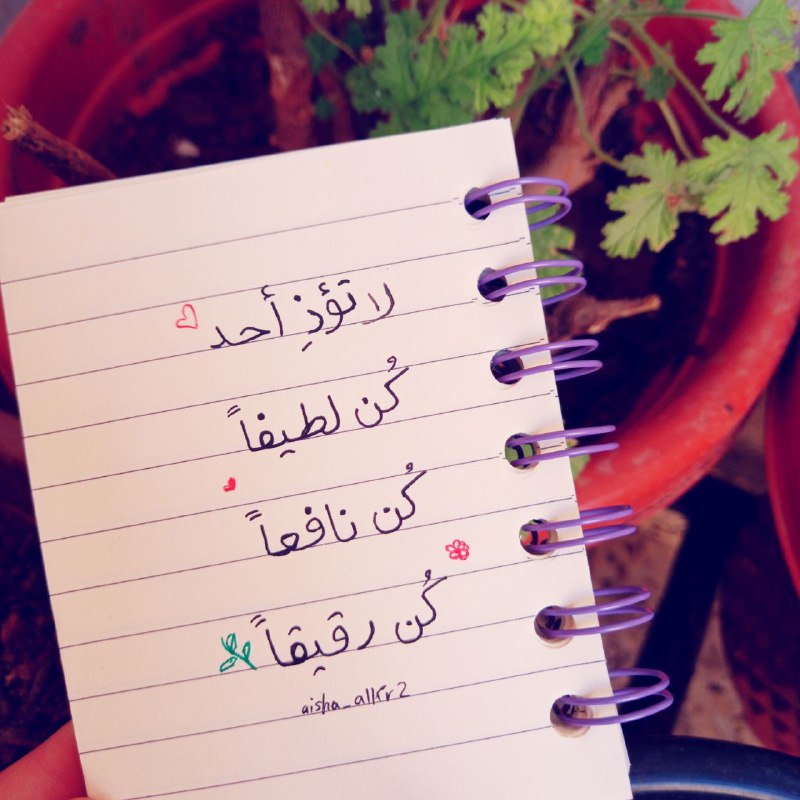 لا تؤذِ أحد
كُن لطيفاً
كُن نافعاً
كُن رقيقاً
aisha_alkr2